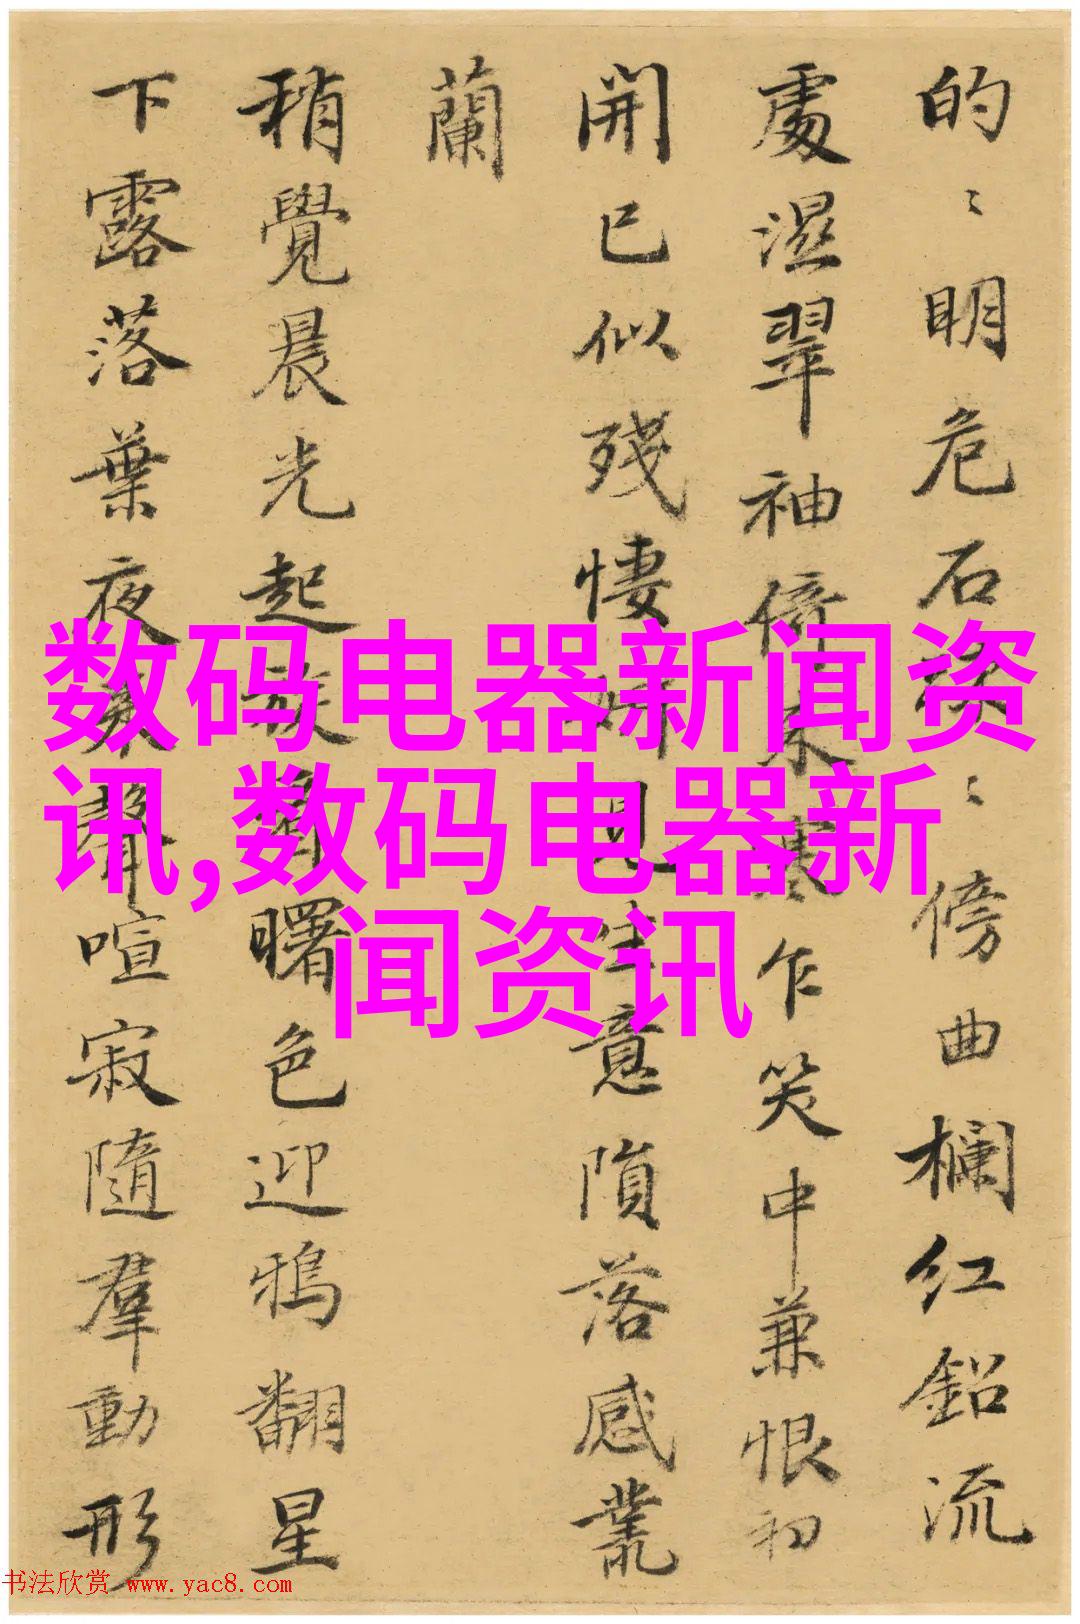 的〻明危石
〻傍曲欄紅鉛流
處濕翠袖倚
寒乍笑中兼恨初
開已似殘悽
見生意隕落感叢
蘭
稍覺晨光起
曙色迎鴉翻星
下露落葉夜
聲喧寂隨羣動形
数码电器新闻资
讯,数码电器新
闻资讯
书法欣赏 www.yac8.com